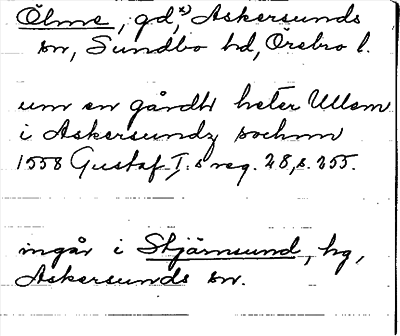 Ölme, gd,*) Askersunds
sn, Sundbo hd, Örebro l.
um en gårdh heter Ullem
i Askersundz sochnn
1558 Gustaf I:s reg. 28, s. 255.
ingår i Stjärnsund, hg,
Askersunds sn.